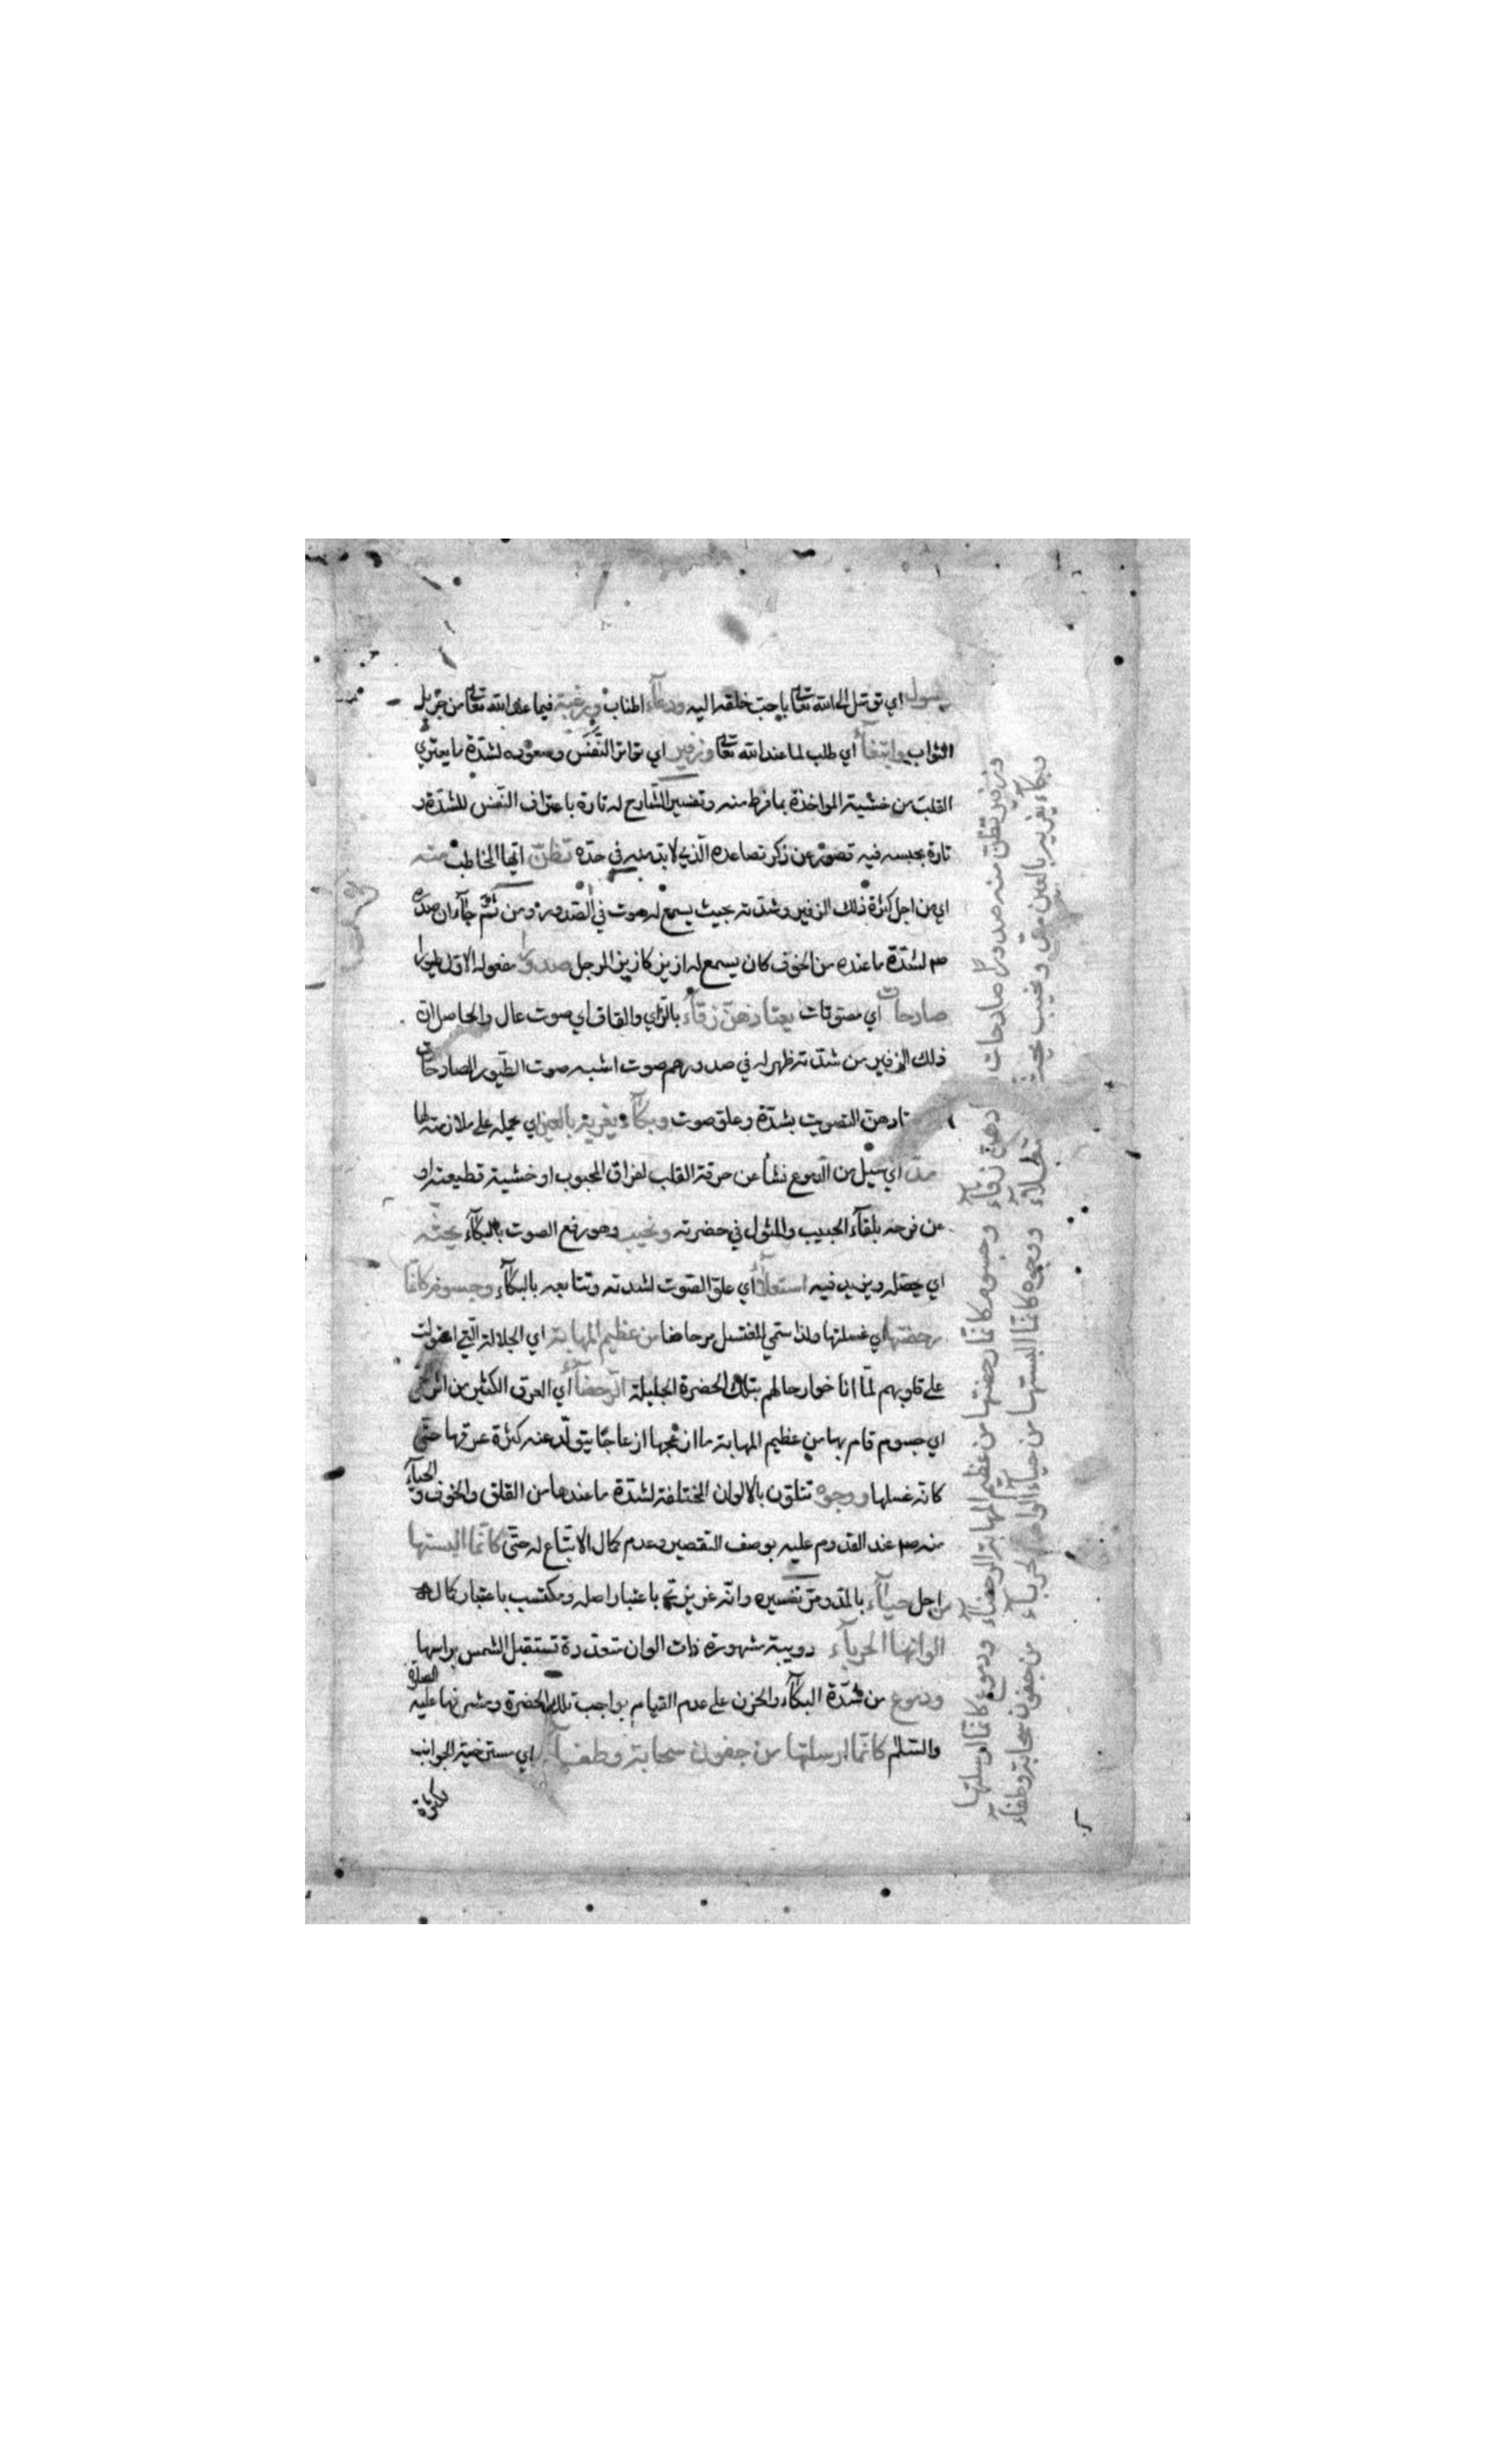 وسول اي توسل الى الله تعالى باحب خلقه اليه ودعاء اطناب ورغبة فيما عند الله تعالى من جزيل
الثواب وابتغاء أي طلب لما عند الله تعالى وزفير اي تواتر النفس وصعوده لشدة ما يعتري
القلب من خشية المواخذة بما فرط منه وتفسير الشارح له تارة باعتراف النفس للشدة و
تارة بحبسه فيه تصور عن ذكر تصاعده الذي لابد منه في حده تظن ايها المخاطب منه
اي من اجل كثرة ذلك الزفير وشدته بحيث يسمع له صوت في الصدور ومن ثم جاء ان صدره
صم لشدة ما عنده من الخوف كان يسمع له ازيز كازيز المرجل صدورا مفعوله الاول طيورا
صادحات اي مصوتات يعتادهن زقاء بالزاي والقاف اي صوت عال والحاصل ان
ذلك الزفير من شدته ظهر له في صدورهم صوت اشبه صوت الطيور الصادحات
تادهن التصويت بشدة وعلو صوت وبكاء يغريه بالعين اي يحمله على ملازمته لها
مد اي سيل من الدموع نشأ عن حرقة القلب لفراق المحبوب او خشية قطيعته او
عن فرحه بلقاء الحبيب والمثول في حضرته ونحيب وهو رفع الصوت بالبكاء يحثه
اي يحصله ويزيد فيه استعلاء أي علو الصوت لشدته وتتابعه بالبكاء وجسوم كانما
رحضتها اي غسلتها ولذا سمي المغتسل مرحاضا من عظيم المهابة اي الجلالة التي استولت
على قلوبهم لما اناخوا رحالهم بتلك الحضرة الجليلة الرحضاء أي العرق الكثير من اثر
اي جسوم قام بها من عظيم المهابة ما ازعجها ازعاجا يتولد عنه كثرة عرقها حتى
كانه غسلها ووجوه تتلون بالالوان المختلفة لشدة ما عندها من القلق والخوف والحياء
منه صم عند القدوم عليه بوصف التقصير وعدم كمال الاتباع له حتى كانما البستها
من اجل حياء بالمد ومر تفسيره وانه غريزي باعتبار اصله ومكتسب باعتبار كماله
الوانها الحرباء دويبة مشهورة ذات الوان متعددة تستقبل الشمس براسها
ودموع من شدة البكاء والحزن على عدم القيام بواجب تلك الحضرة ومشرفها عليه الصلاة
والسلام كانما ارسلتها من جفون سحابة وطفاء اي مسترخية الجوانب
لكثرة
وزفير تظن منه صدورا صادحات دهن زقاء وجسوم كانما رحضتها من عظيم المهابة الرحضاء ودموع كانما ارسلتها
وبكاء يغريه بالعين مد ونحيب يحثه استعلاء ووجوه كانما البستها من حياء الوانها الحرباء من جفون سحابة وطفاء